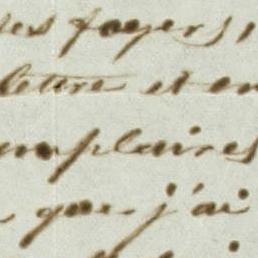 les foyers,
lettre et en
mplaires
que j'ai